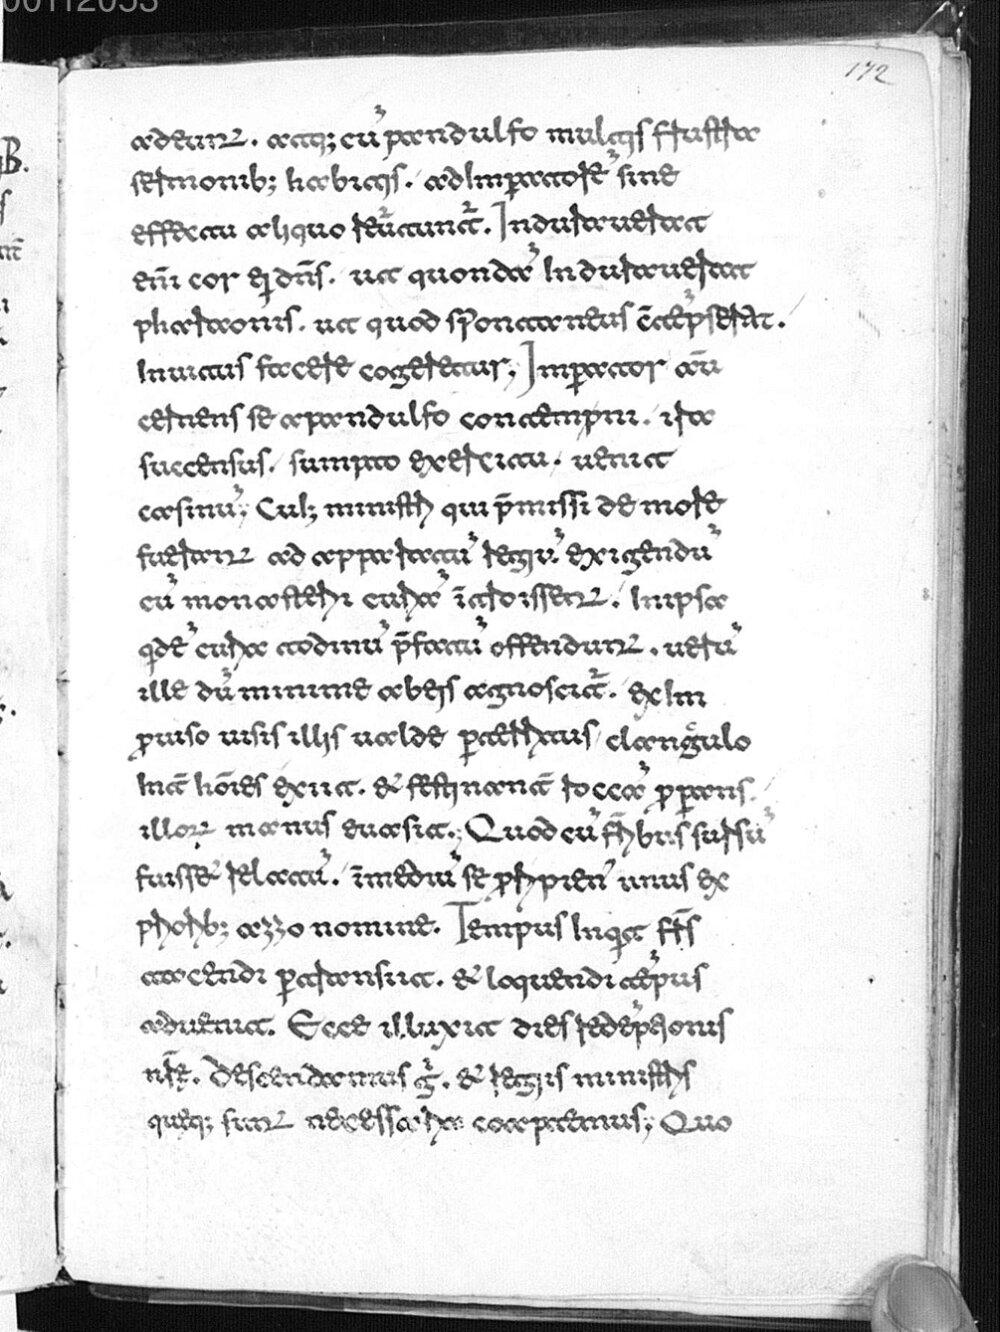 00112053
172
adeunt. atq; cū pandulfo multis frustra
sermonib; habitis. ad Imperatorē sine
effectu aliquo reūtunt̄. Indurauerat
enī cor ei dn̄s. ut quondā Induraverat
pharaonis. ut quod spontaneus cōtēpserat.
Inuitus facere cogeretur; Imperator aū
cernens se a pandulfo contempni. ira
succensus. sumpto exercitu. uenit
casinū; Cuī; ministri qui p̄missi de more
fuerant ad apparatū regiū exigendū
cū monasterii curiā īt̄roissent. In ipsa
qidē curia todinū p̄fatū offendunt. uerū
ille dū minime ab eis agnoscit̄. ex Im
prouiso uisis illis ualde perterritus clangulo
Int̄ hōies exiit. & festinant̄ roccā properans.
illor manus euasit; Quod cū fr̄ibus sursū
fuisset relatū. īmediū se proripien̄ unus ex
priorib; azzo nomine. Tempus Inquit fr̄s
tacendi pertransiit. & loquendi tēpus
aduenit. Ecce illuxit dies redēptionis
nr̄ę. Descendamus g̊. & regis ministris
queq; sunt necessaria coaptemus; Quo